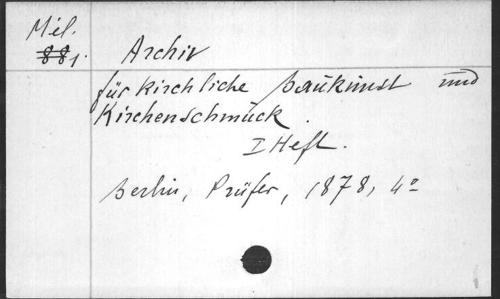 Mél.
881.
Archiv
für kirchliche Baukunst und
Kirchenschmuck.
I Heft.
Berlin, Prüfer, 1878, 4º